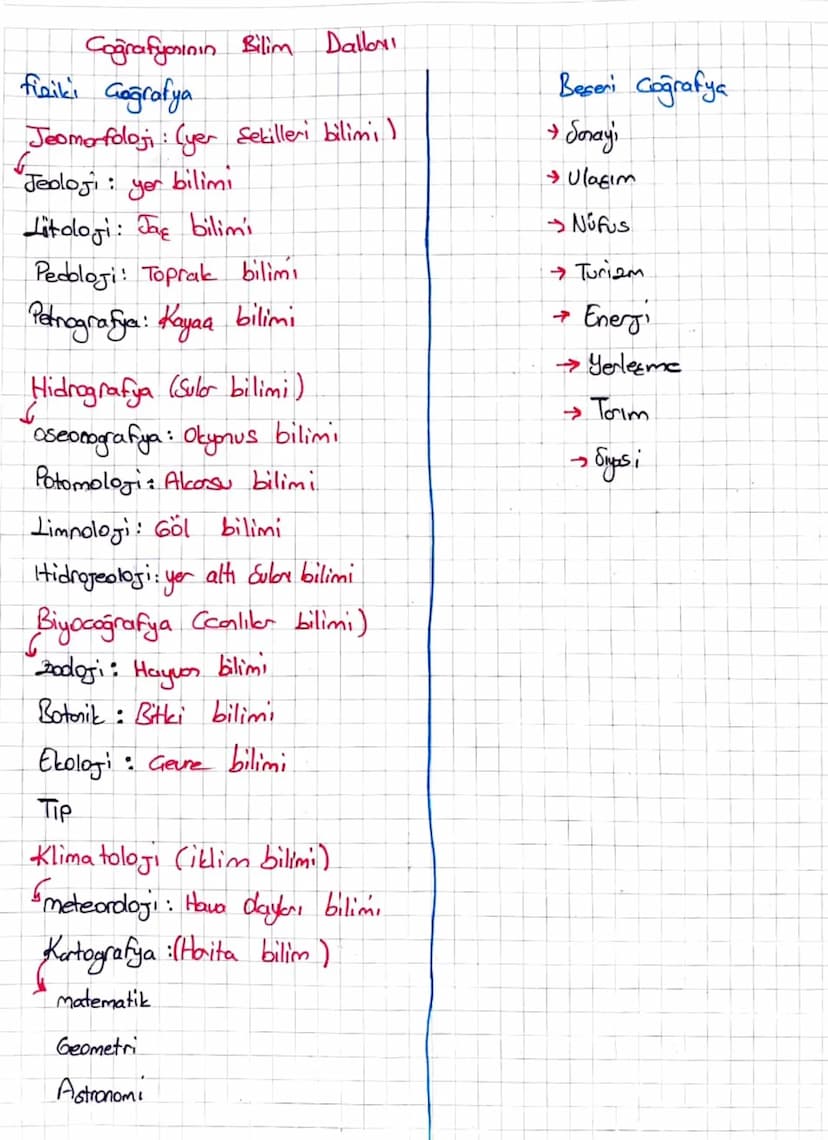 Coğrafyanının Bilim Dalları
fiziki Coğrafya
Jeomorfoloji: (yer Şekilleri bilimi)
Jeoloji: yer bilimi
Litoloji: Taş bilimi
Pedoloji: Toprak bilimi
Petrografya: Kayaa bilimi
Hidrografya (Sular bilimi)
Oseonografya: Okyanus bilimi
Potomoloji: Akarsu bilimi
Limnoloji: Göl bilimi
Hidrojeoloji: yer altı Suları bilimi
Biyocoğrafya (canlılar bilimi)
zooloji: Hayvan bilimi
Botanik: Bitki bilimi
Ekoloji: Çevre bilimi
Tıp
Klimatoloji (iklim bilimi)
meteoroloji: Hava olayları bilimi
Kartografya: (Harita bilim)
matematik
Geometri
Astronomi
Beşeri Coğrafya
→ Sanayi
→ Ulaşım
→ Nüfus
→ Turizm
→ Enerji
→ Yerleşme
→ Tarım
→ Siyasi